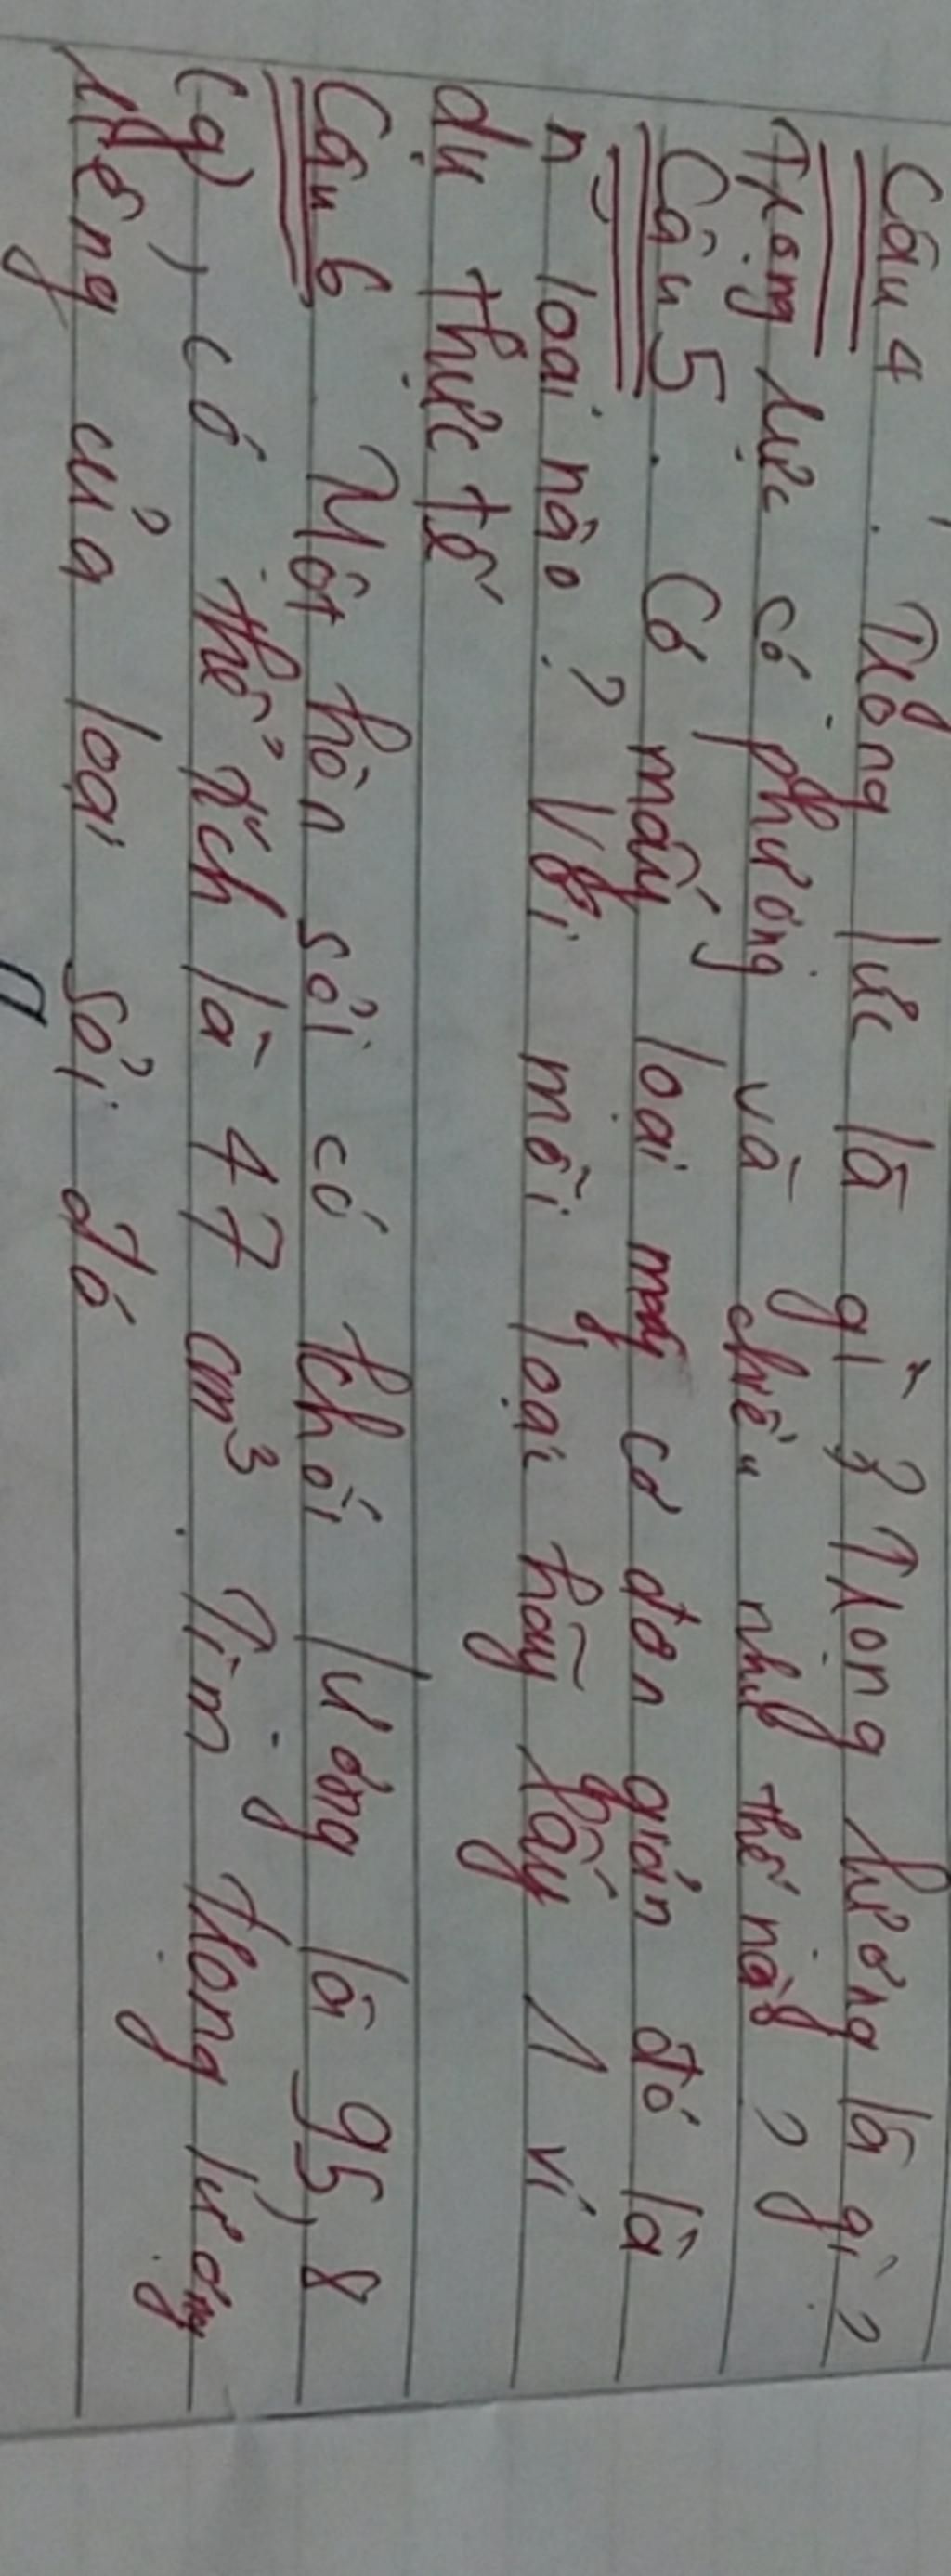 Câu 4. Trọng lực là gì? Trọng lượng là gì?
Trọng lực có phương và chiều như thế nào?
Câu 5. Có mấy loại máy cơ đơn giản đó là
n~ loại nào? Với mỗi loại hãy lấy 1 ví
dụ thực tế
Câu 6. Một hòn sỏi có khối lượng là 95,8
(g), có thể tích là 47 cm³. Tìm trọng lượng
riêng của loại sỏi đó